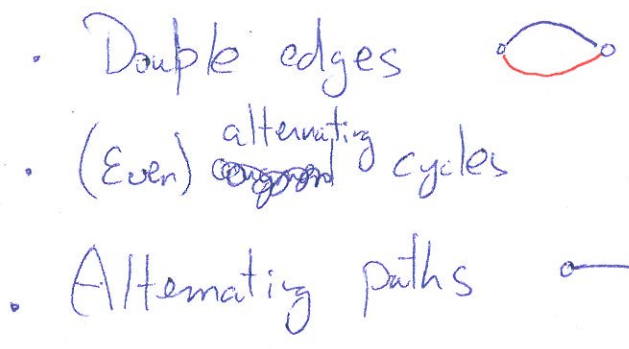 . Double edges
. (Even) alternating cycles
. Alternating paths